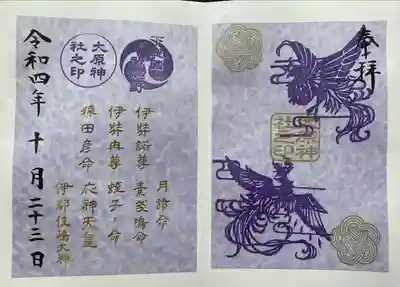 奉拝
大原神
社之印
月読命
伊弉諾尊 素盞嗚命
伊弉冉尊 蛭子ノ命
猿田彦命 応神天皇
伊都伎嶋大神
令和四年 十月二十三日